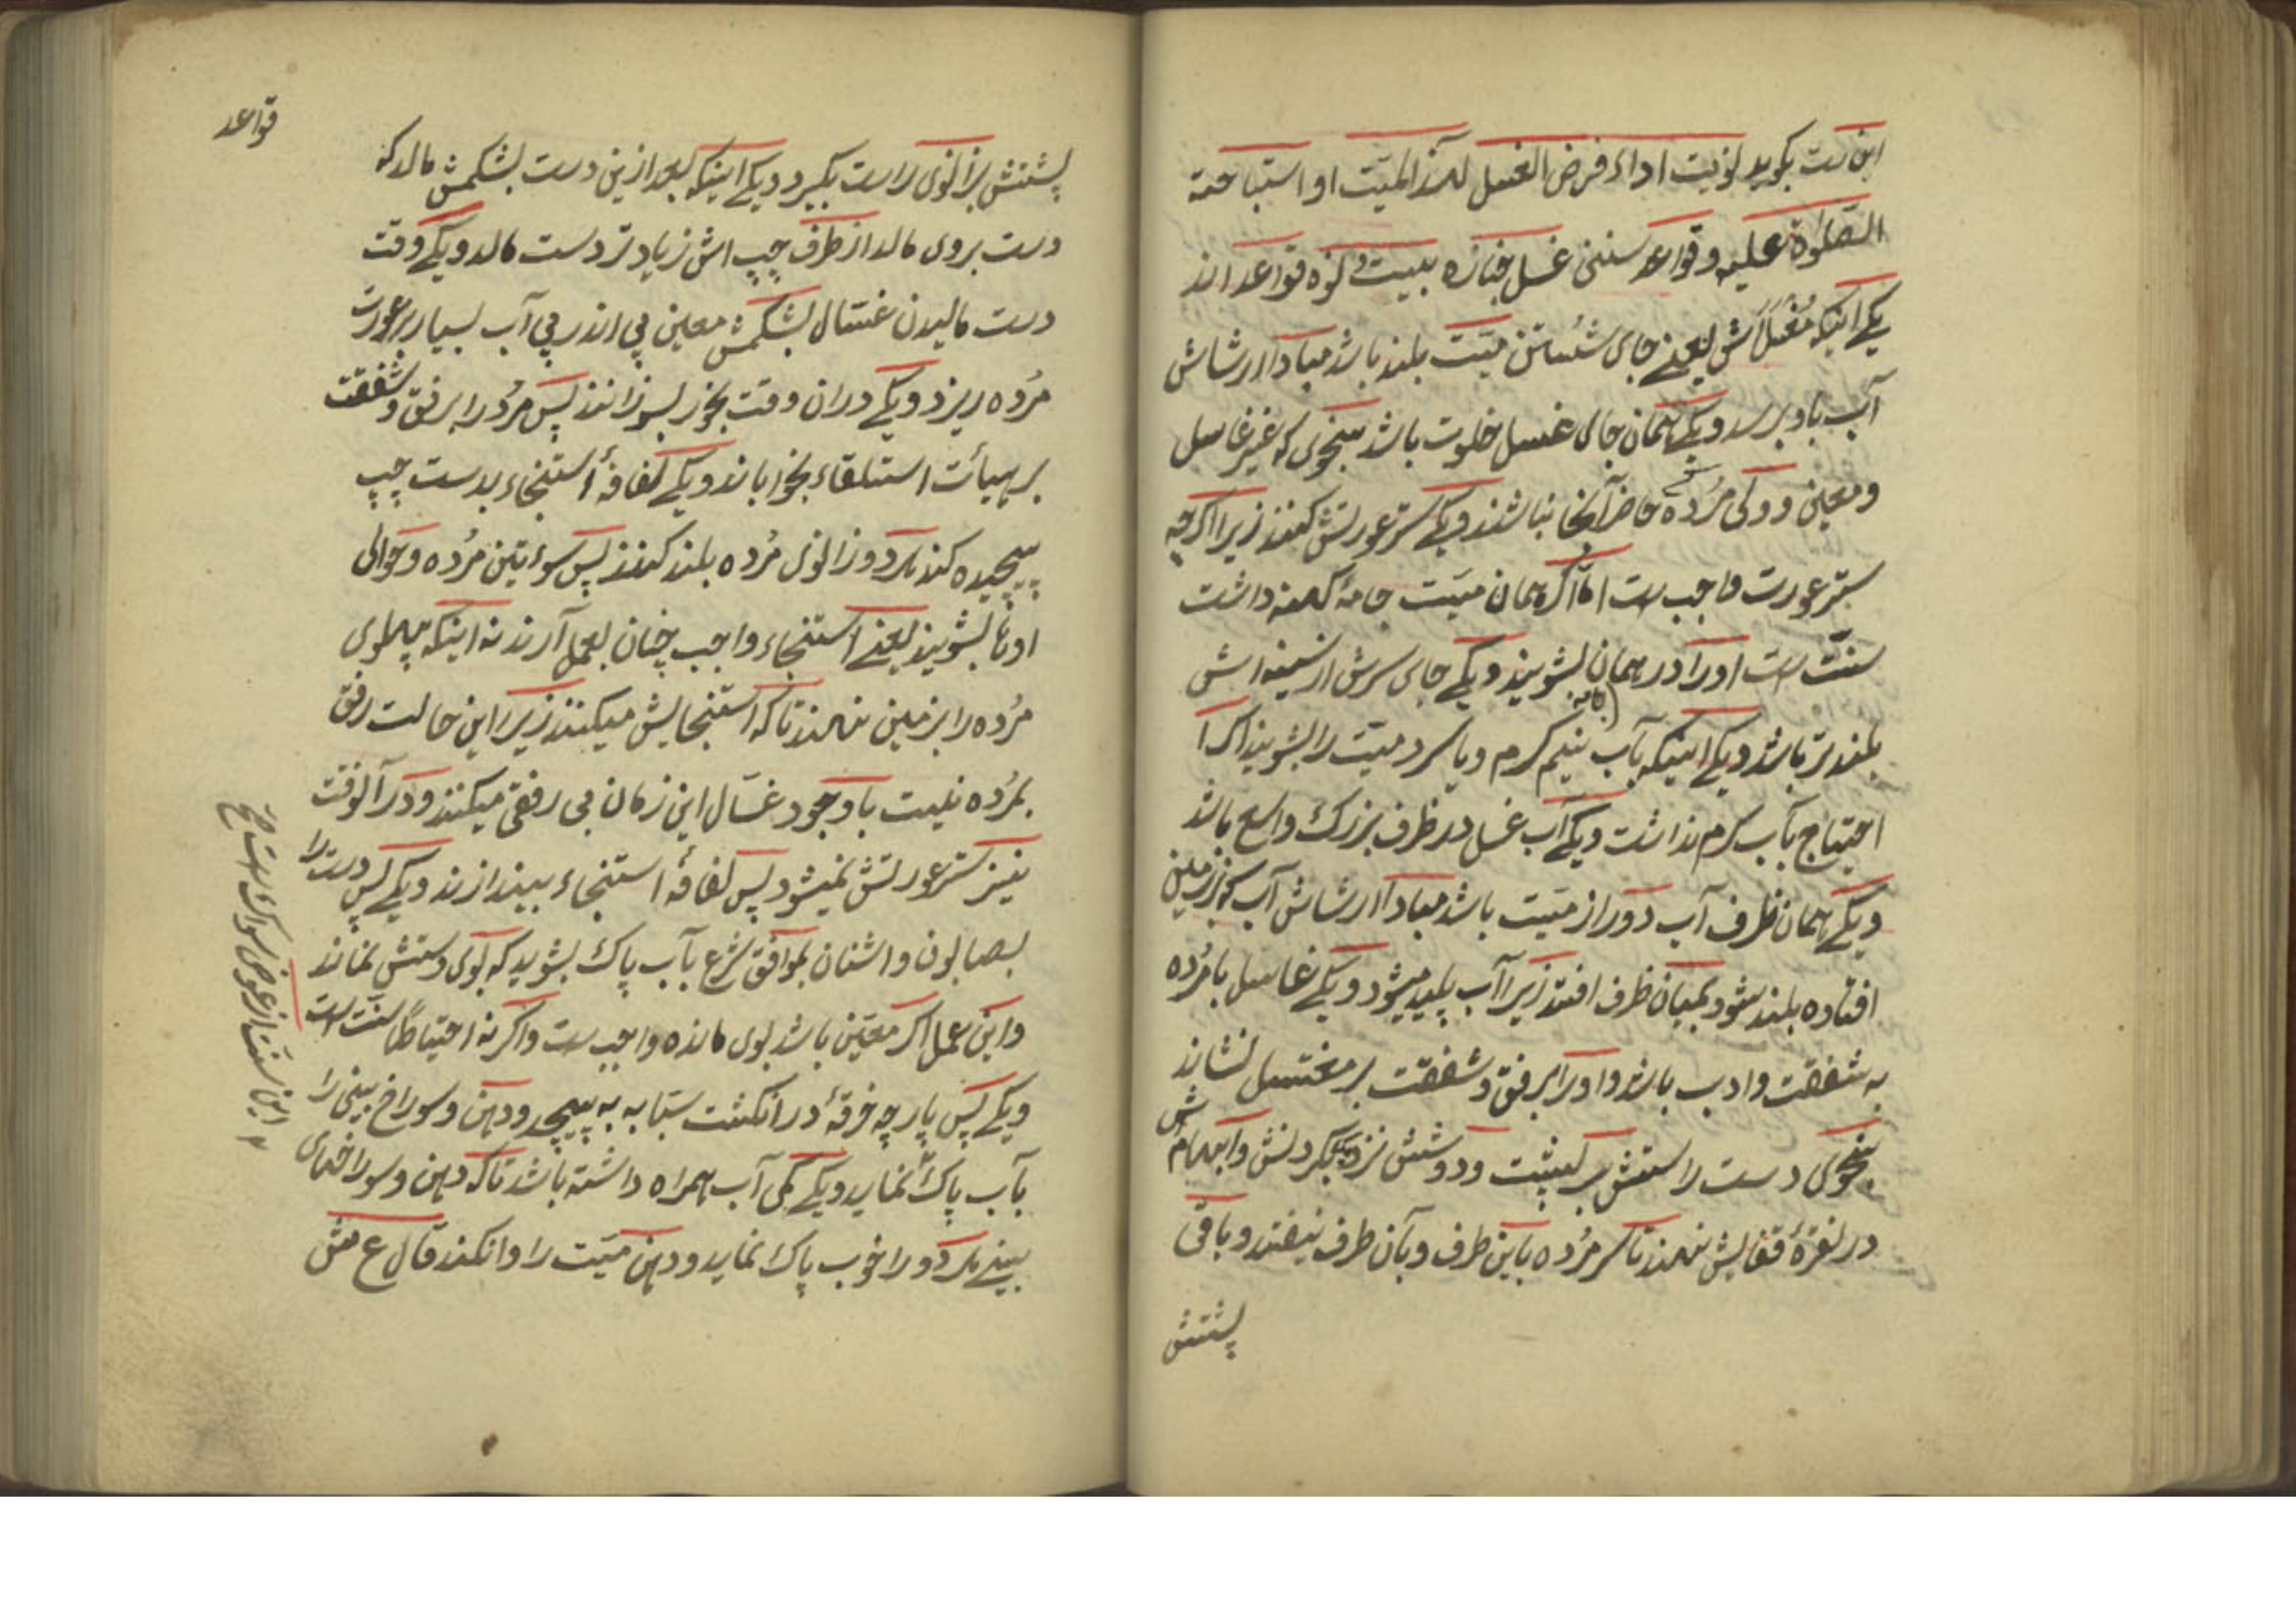 این است بگوید نویت اداء فرض الغسل لهذا المیّت او استباحة
الصّلوٰة علیه و قواعد سننی غسل جنازه بیست و نُه قواعد اند
یکی اینکه مُغْتَسَلَش یعنی جای شُستن میّت بلند باشد مبادا از رشاش
آب باو برسد و یکی همان جای غسل خلوت باشد بنحوی که غیر غاسل
و معین و ولی مُرده حاضر آنجا نباشند و یکی ستر عورتش کنند زیرا اگرچه
ستر عورت واجب است امّا اگر همان میّت جامهٔ کهنه داشت
سنّت است او را در همان بشویند و یکی جای سرش از سینه اش
بلندتر باشد و یکی اینکه بآب نیم گرم و یا سرد میّت را بشویند اگر
احتیاج بآب گرم نداشت و یکی آب غسل در ظرف بزرگ واسع باشد
و یکی همان ظرف آب دور از میّت باشد مبادا از رشاش آب که بزمین
افتاده بلند شود بمیان ظرف افتد زیرا آب پلید میشود و یکی غاسل با مُرده
به شفقت و ادب باشد و او را برفق و شفقت بر مغتسل نشاند
بنحوی دست راستش بر پشت و دوشش نزدیک گردنش و ابهامش
در نقرهٔ قفایش نهند تا سر مُرده باین طرف و بآن طرف نیفتد و باقی
پشتش
قواعد
پشتش بزانوی راست بگیرد و یکی اینکه بعد ازین دست بشکمش مالد که
دست بروی مالد از طرف چپ اش زیادتر دست مالد و یکی وقت
دست مالیدن غسّال بشکمش معین پی اندر پی آب بسیار بر عورت
مُرده ریزد و یکی در ان وقت بخور بسوزانند پس مُرده را برفق و شفقت
بر هیأت استلقاء بخواباند و یکی لفافهٔ استنجاء بدست چپ
پیچیده کند هر دو زانوی مُرده بلند کنند پس سوءتین مُرده و حوالی
اونها بشویند یعنی استنجاء واجب چنان بعمل آرند نه اینکه پهلوی
مُرده را بزمین نهند تا که استنجایش میکنند زیرا این حالت رفق
بمُرده نیست با وجود غسّال این زمان بی رفقی میکنند و در آنوقت
نیز ستر عورتش نمیشود پس لفافهٔ استنجاء بیندازند و یکی پس دست را
بصابون و اشنان بموافق شرع بآب پاک بشوید که بوی دستش نماند
و این عمل اگر معیّن باشد بوی مانده واجب است و اگر نه احتیاطًا سنّت است
و یکی پس پارچه خرقهٔ در انگشت سبّابه به پیچد و دهن و سوراخ بینی را
بآب پاک نماید و یکی کمی آب همراه داشته باشد تا که دهن و سوراخهای
بینی هر دو را خوب پاک نماید و دهن میّت را وا نکند قال ع ش
این سنّت از عوض سواک است